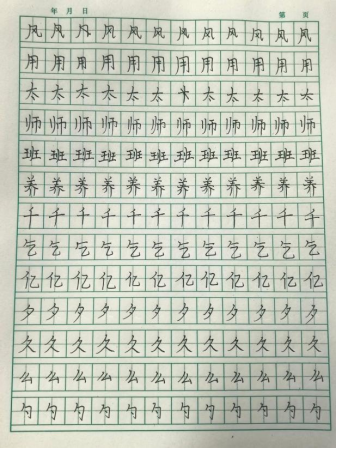 年 月 日 第 页
风风风风风风风风风风风风
用用用用用用用用用用用用
太太太太太太太太太太太太
师师师师师师师师师师师师
班班班班班班班班班班班班
养养养养养养养养养养养养
千千千千千千千千千千千千
乞乞乞乞乞乞乞乞乞乞乞乞
亿亿亿亿亿亿亿亿亿亿亿亿
夕夕夕夕夕夕夕夕夕夕夕夕
久久久久久久久久久久久久
么么么么么么么么么么么么
勺勺勺勺勺勺勺勺勺勺勺勺